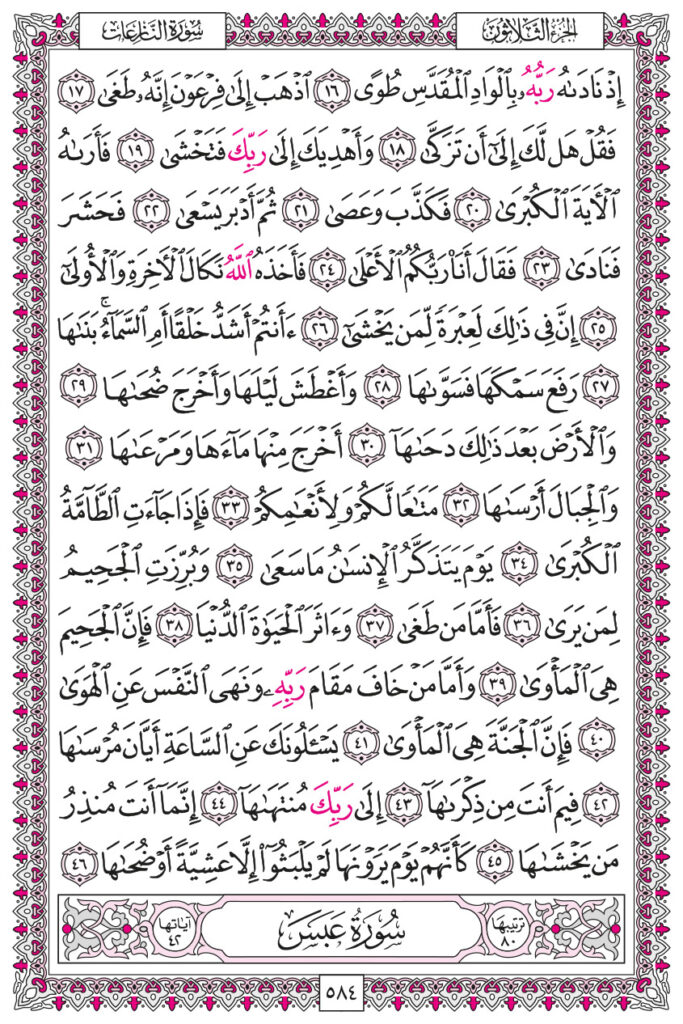 سُورَةُ النَّازِعَاتِ
الجُزءُ الثَّلَاثُونَ
إِذْ نَادَىٰهُ رَبُّهُۥ بِالْوَادِ الْمُقَدَّسِ طُوًى ١٦ اذْهَبْ إِلَىٰ فِرْعَوْنَ إِنَّهُۥ طَغَىٰ ١٧
فَقُلْ هَل لَّكَ إِلَىٰٓ أَن تَزَكَّىٰ ١٨ وَأَهْدِيَكَ إِلَىٰ رَبِّكَ فَتَخْشَىٰ ١٩ فَأَرَىٰهُ
الْأٓيَةَ الْكُبْرَىٰ ٢٠ فَكَذَّبَ وَعَصَىٰ ٢١ ثُمَّ أَدْبَرَ يَسْعَىٰ ٢٢ فَحَشَرَ
فَنَادَىٰ ٢٣ فَقَالَ أَنَا۠ رَبُّكُمُ الْأَعْلَىٰ ٢٤ فَأَخَذَهُ اللَّهُ نَكَالَ الْأٓخِرَةِ وَالْأُولَىٰٓ
٢٥ إِنَّ فِى ذَٰلِكَ لَعِبْرَةً لِّمَن يَخْشَىٰٓ ٢٦ ءَأَنتُمْ أَشَدُّ خَلْقًا أَمِ السَّمَآءُ ۚ بَنَىٰهَا
٢٧ رَفَعَ سَمْكَهَا فَسَوَّىٰهَا ٢٨ وَأَغْطَشَ لَيْلَهَا وَأَخْرَجَ ضُحَىٰهَا ٢٩
وَالْأَرْضَ بَعْدَ ذَٰلِكَ دَحَىٰهَآ ٣٠ أَخْرَجَ مِنْهَا مَآءَهَا وَمَرْعَىٰهَا ٣١
وَالْجِبَالَ أَرْسَىٰهَا ٣٢ مَتَٰعًا لَّكُمْ وَلِأَنْعَٰمِكُمْ ٣٣ فَإِذَا جَآءَتِ الطَّآمَّةُ
الْكُبْرَىٰ ٣٤ يَوْمَ يَتَذَكَّرُ الْإِنسَٰنُ مَا سَعَىٰ ٣٥ وَبُرِّزَتِ الْجَحِيمُ
لِمَن يَرَىٰ ٣٦ فَأَمَّا مَن طَغَىٰ ٣٧ وَءَاثَرَ الْحَيَوٰةَ الدُّنْيَا ٣٨ فَإِنَّ الْجَحِيمَ
هِىَ الْمَأْوَىٰ ٣٩ وَأَمَّا مَنْ خَافَ مَقَامَ رَبِّهِۦ وَنَهَى النَّفْسَ عَنِ الْهَوَىٰ
٤٠ فَإِنَّ الْجَنَّةَ هِىَ الْمَأْوَىٰ ٤١ يَسْـَٔلُونَكَ عَنِ السَّاعَةِ أَيَّانَ مُرْسَىٰهَا
٤٢ فِيمَ أَنتَ مِن ذِكْرَىٰهَآ ٤٣ إِلَىٰ رَبِّكَ مُنتَهَىٰهَآ ٤٤ إِنَّمَآ أَنتَ مُنذِرُ
مَن يَخْشَىٰهَا ٤٥ كَأَنَّهُمْ يَوْمَ يَرَوْنَهَا لَمْ يَلْبَثُوٓا۟ إِلَّا عَشِيَّةً أَوْ ضُحَىٰهَا ٤٦
ترتيبها ٨٠ سُورَةُ عَبَسَ آياتها ٤٢
٥٨٤